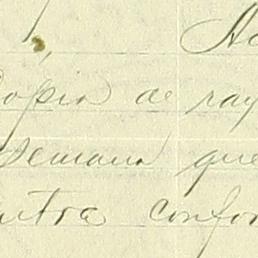 copia de ray
semana que
entra confor